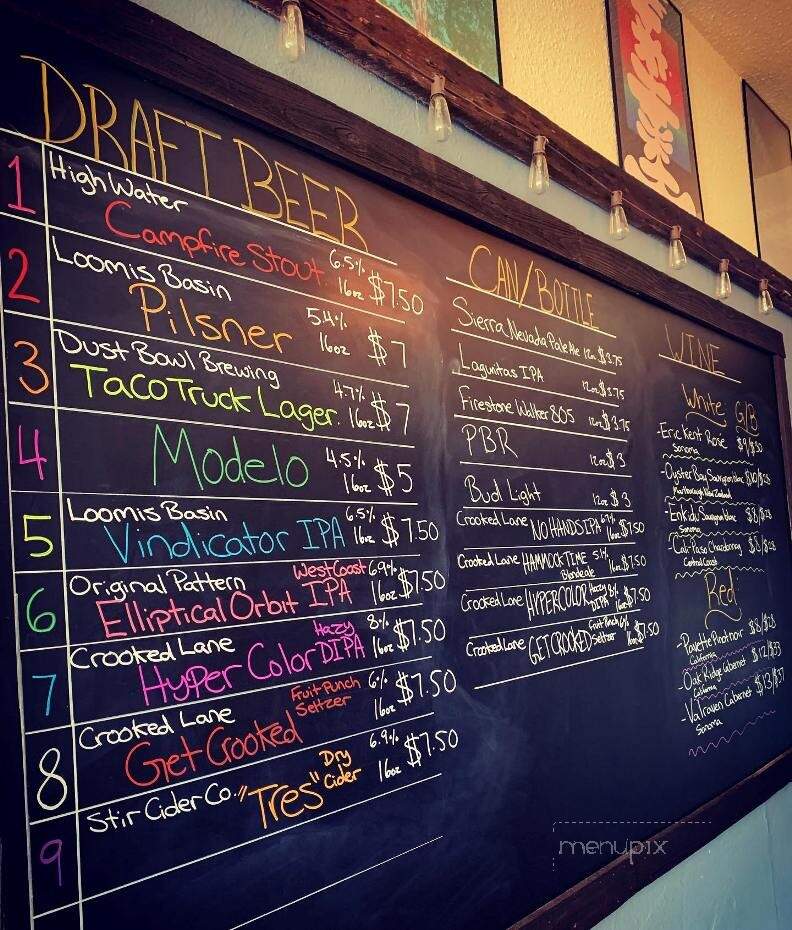 DRAFT BEER
1 High Water
Campfire Stout 6.5% 16oz $7.50
2 Loomis Basin
Pilsner 5.4% 16oz $7
3 Dust Bowl Brewing
Taco Truck Lager. 4.7% 16oz $7
4 Modelo 4.5% 16oz $5
5 Loomis Basin
Vindicator IPA 6.5% 16oz $7.50
6 Original Pattern West Coast
Elliptical Orbit IPA 6.9% 16oz $7.50
7 Crooked Lane Hazy
Hyper Color DIPA 8% 16oz $7.50
8 Crooked Lane Fruit Punch Seltzer
Get Crooked 6% 16oz $7.50
9 Stir Cider Co. "Tres" Dry Cider 6.9% 16oz $7.50
CAN/BOTTLE
Sierra Nevada Pale Ale 12oz $3.75
Lagunitas IPA 12oz $3.75
Firestone Walker 805 12oz $3.75
PBR 12oz $3
Bud Light 12oz $3
Crooked Lane NO HANDS IPA 16oz $7.50
Crooked Lane HAMMOCK TIME Blonde ale 16oz $7.50
Crooked Lane HYPERCOLOR Hazy DIPA 8% 16oz $7.50
Crooked Lane GET CROOKED Fruit Punch Seltzer 6% 16oz $7.50
WINE
White G/B
-Eric Kent Rose
Sonoma
-Oyster Bay Sauvignon blanc
Marlborough New Zealand
-Enkidu Sauvignon blanc $8/$28
Sonoma
-Cali-Paso Chardonnay $8/$28
Central Coast
Red
-Pavette Pinot noir $8/$28
California
-Oak Ridge Cabernet $12/$53
California
-Valraven Cabernet $13/$57
Sonoma
menupix